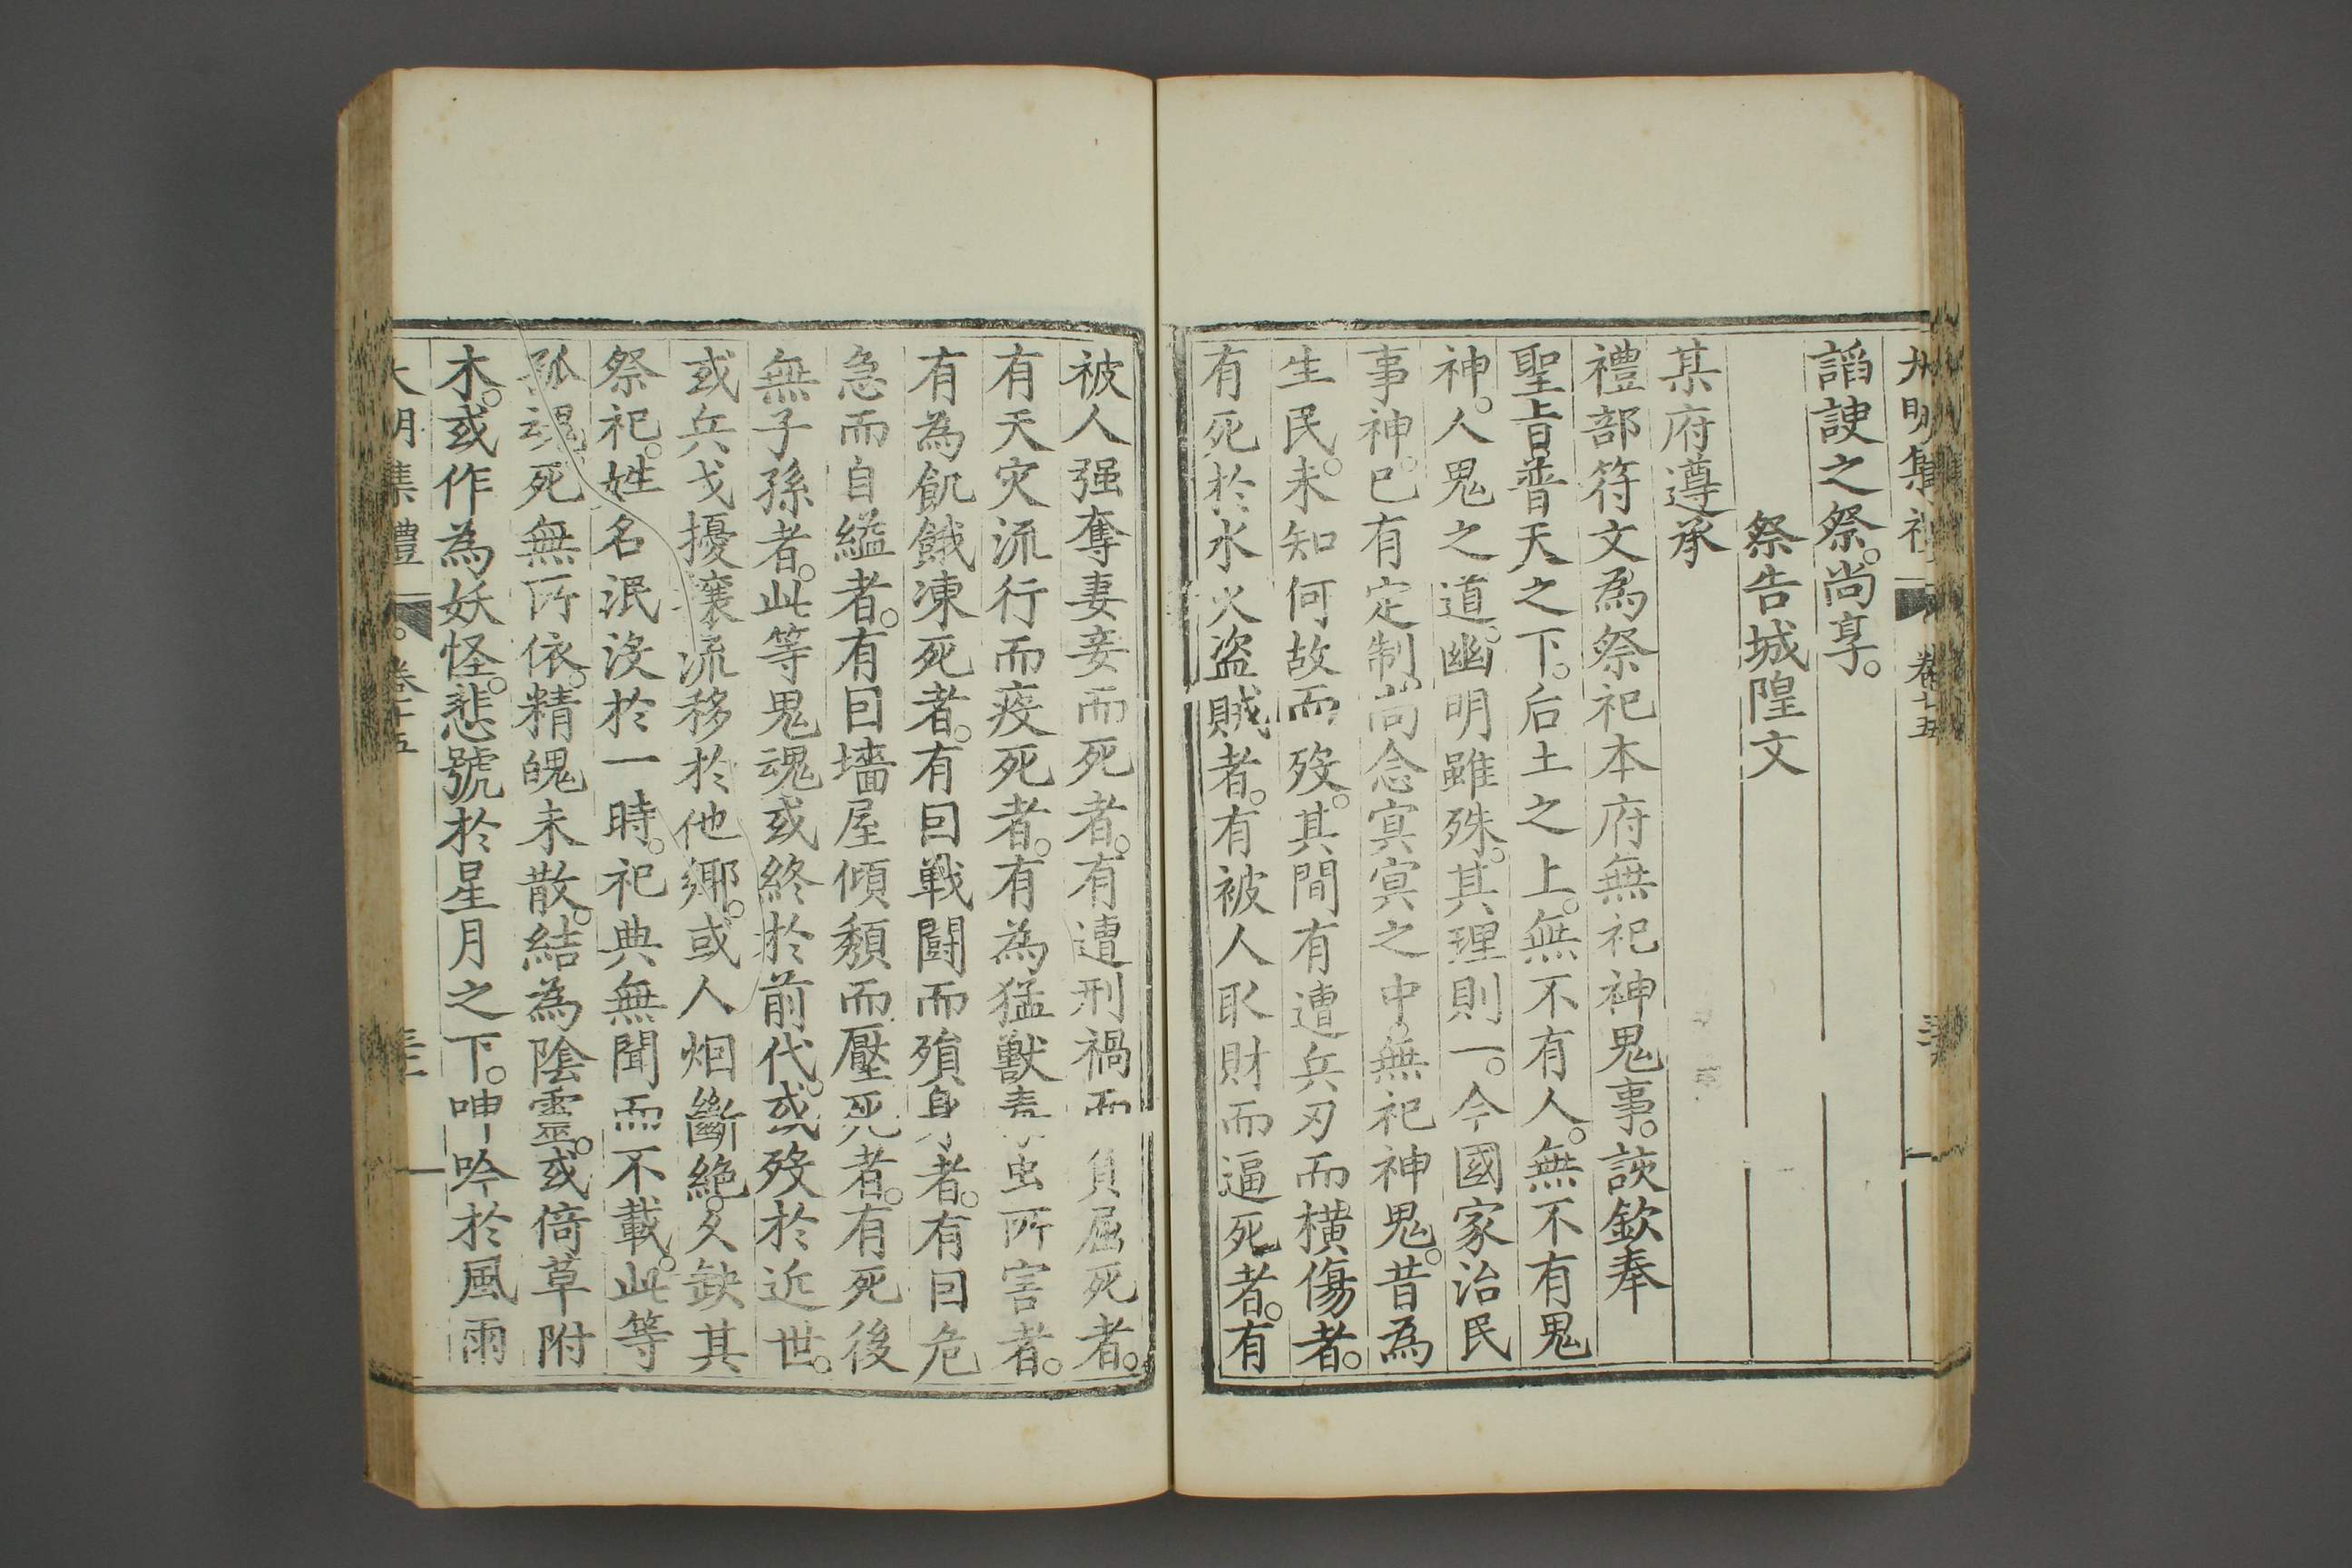 大明集禮 卷十五
謟諛之祭。尚享。
祭告城隍文
某府遵承
禮部符文為祭祀本府無祀神鬼事。該欽奉
聖旨普天之下。后土之上。無不有人。無不有鬼
神。人鬼之道。幽明雖殊。其理則一。今國家治民
事神。已有定制尚念冥冥之中。無祀神鬼。昔為
生民。未知何故而歿。其間有遭兵刃而横傷者。
有死於水火盗賊者。有被人取財而逼死者。有
被人强奪妻妾而死者。有遭刑禍而負屈死者。
有天灾流行而疫死者。有為猛獸毒虫所害者。
有為飢餓凍死者。有因戰鬪而殞身者。有因危
急而自縊者。有因墻屋傾頹而壓死者。有死後
無子孫者。此等鬼魂或終於前代。或歿於近世。
或兵戈擾攘流移於他郷。或人烟斷絶。久缺其
祭祀。姓名泯没於一時。祀典無聞而不載。此等
孤魂死無所依。精魄未散。結為陰靈。或倚草附
木。或作為妖怪。悲號於星月之下。呻吟於風雨
大明集禮 卷十五